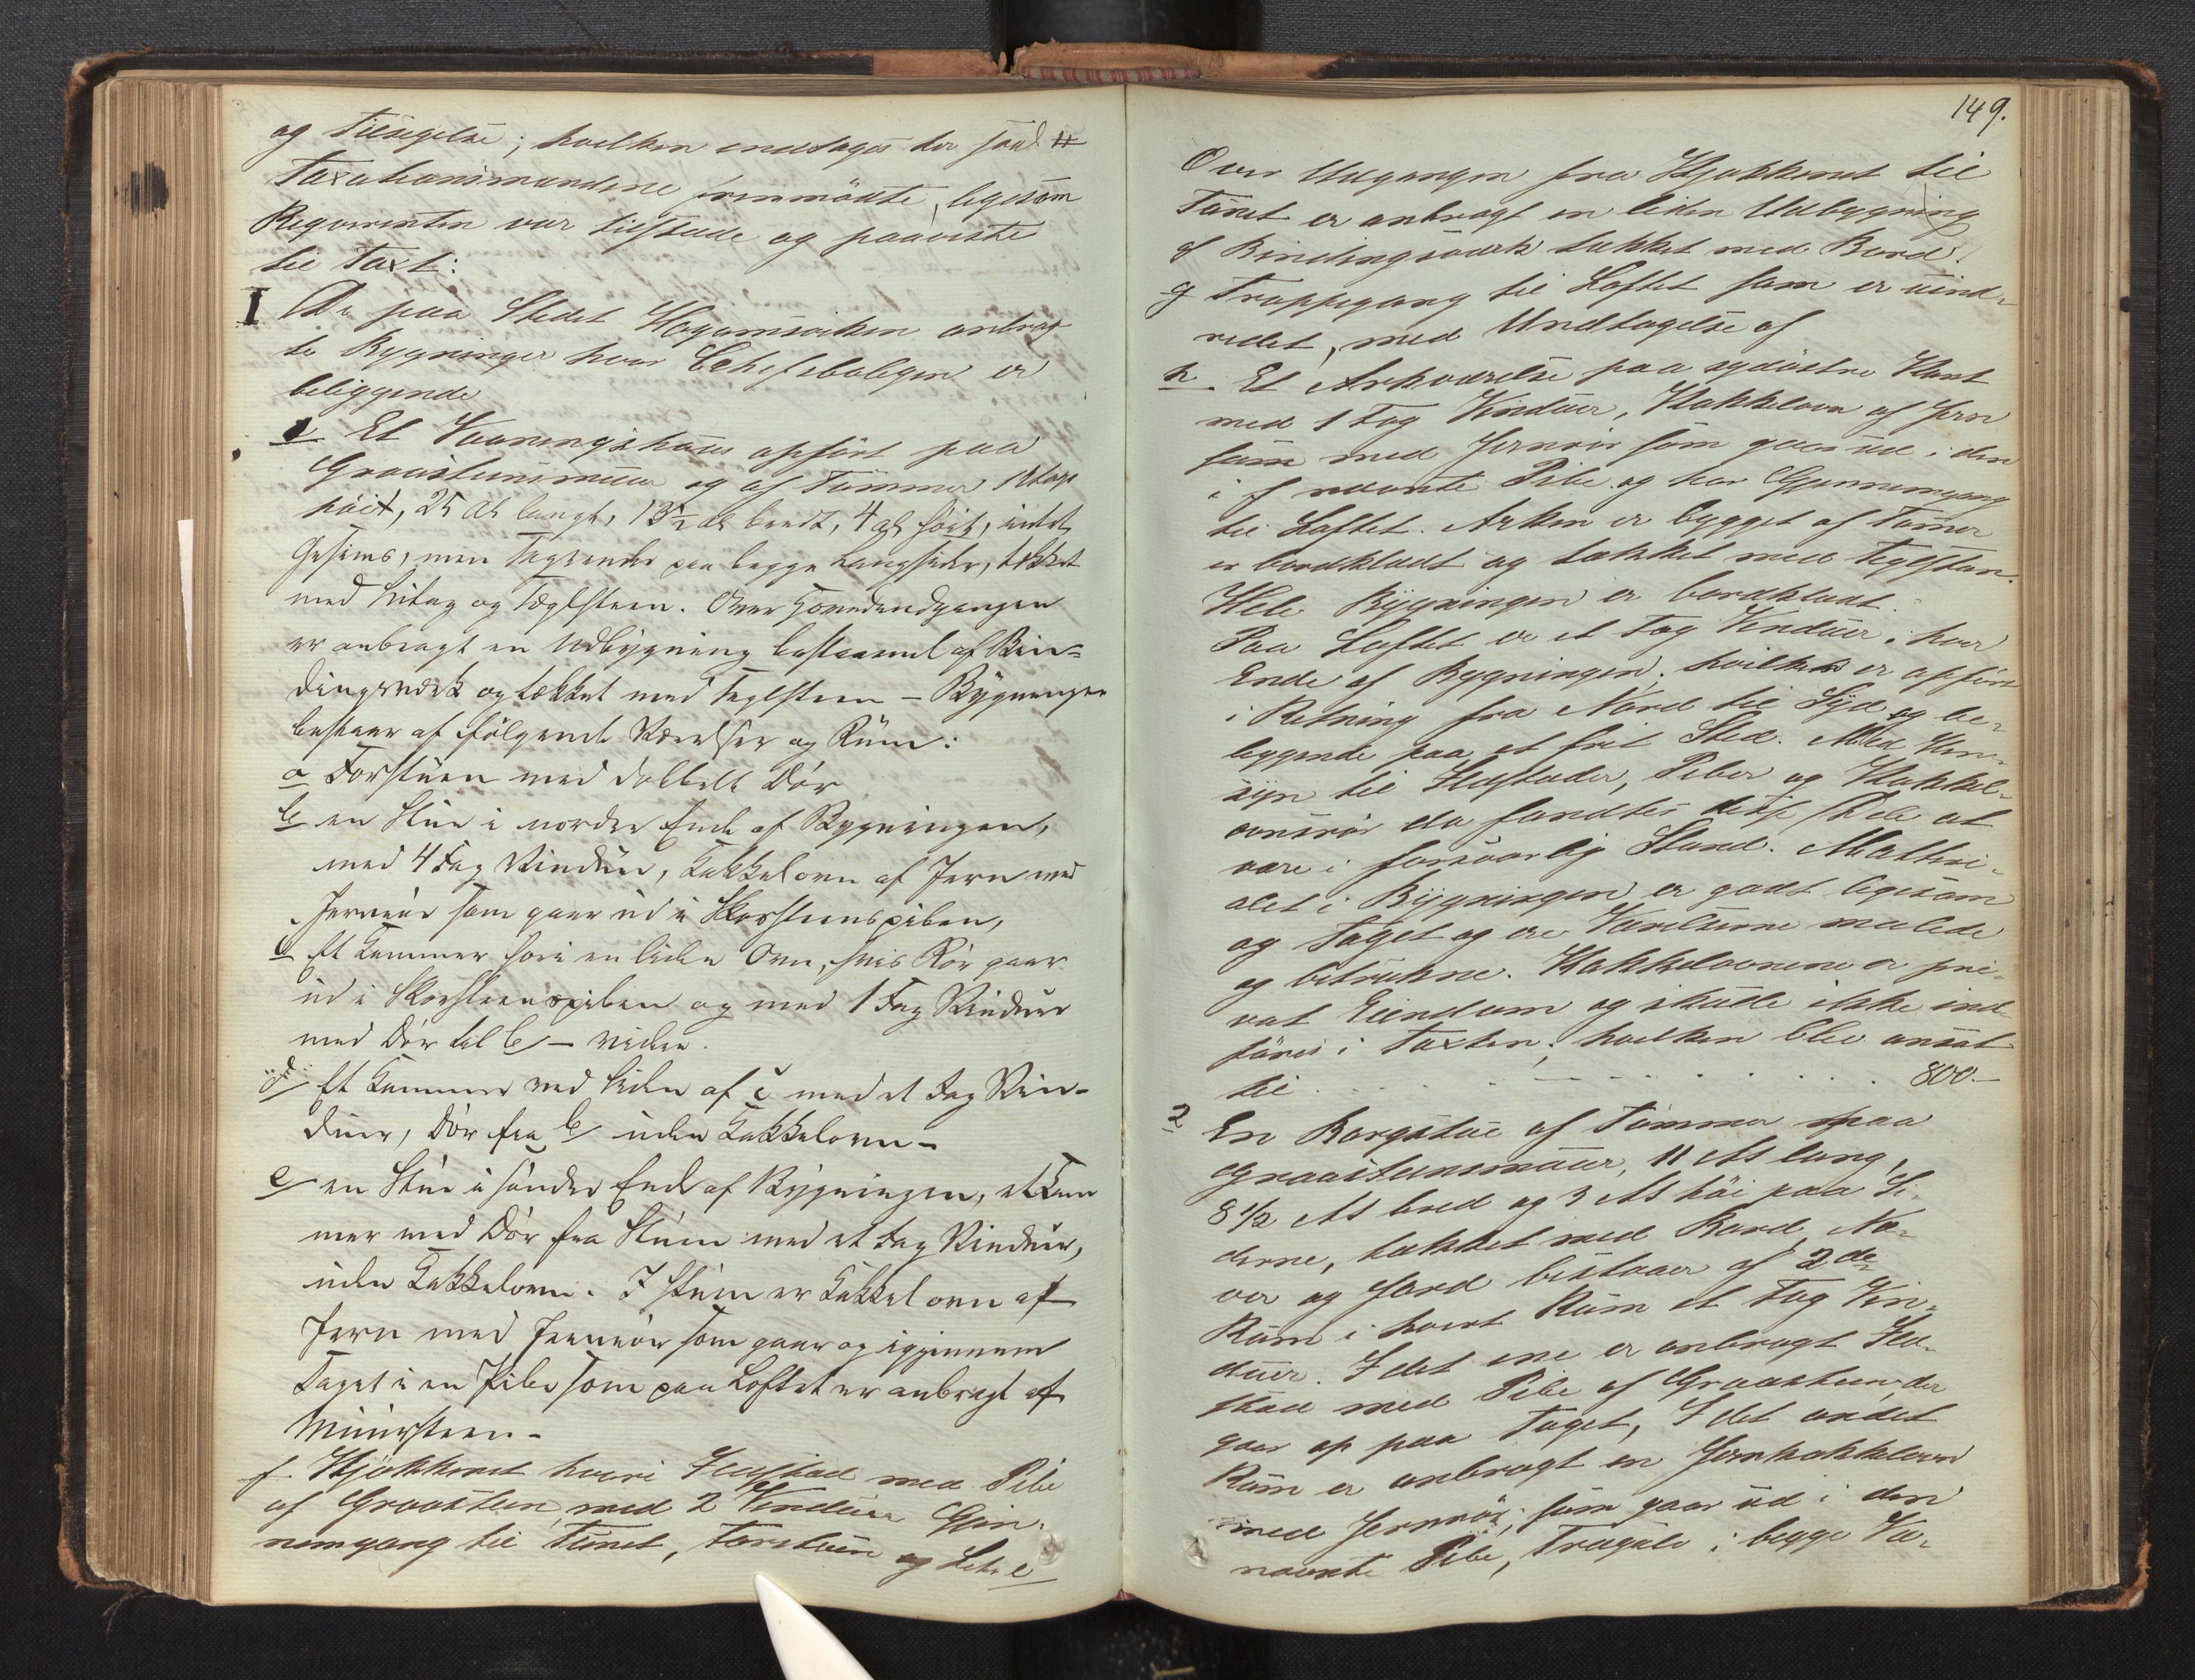 og Tilsigelse; hvilken indtages der saul #
Taxationsmændene fremmødte, ligesom
Reqvirenten var tilstæde og paaviste
til Taxt:
I De paa Stedet Hagamsviken anbrag-
te Bygninger hvor Chefsboligen er
beliggende
1 Et Vaaningshuus opført paa
Graasteensmuur og af Tømmer 1 Etage
høit, 25 Al langt, 13½ Al bredt, 4 Al høit, uden
Gesims, men Tagrender paa begge Langsider, tækket
med Sutag og Tæglsteen. Over Hovedindgangen
er anbragt en Udbygning bestaaende af Bin-
dingsværk og tækket med Teglsteen – Bygningen
bestaar af følgende Værelser og Rum:
a Forstuen med dobbelt Dør
b en Stue i nordre Ende af Bygningen,
med 4 Fag Vinduer, Kakkelovn af Jern med
Jernrør som gaar ud i Skorsteenspiben,
c Et Kammer hvori en liden Ovn, hvis Rør gaar
ud i Skorsteenspiben og med 1 Fag Vinduer
med Dør til b –
d Et Kammer ved Siden af c med et Fag Vin-
duer, Dør fra b uden Kakkelovn –
e en Stue i søndre Ende af Bygningen, et Kam
mer med Dør fra Stuen med et Fag Vinduer,
uden Kakkelovn. I Stuen er Kakkelovn af
Jern med Jernrør som gaar op igjennem
Taget i en Pibe som paa Loftet er anbragt af
Muursteen –
f Kjøkkenet hvori Ildsted med Pibe
af Graasteen, med 2 Vinduer Gjen-
nemgang til Tunet, Forstuen og Let. e
149.
Over Udgangen fra Kjøkkenet til
Tunet er anbragt en liden Udbygning
af Bindingsværk tækket med Bord.
g Trappegang til Loftet som er uind-
redet, med Undtagelse af
h. Et Arkværelse paa sydøstre Kant
med 1 Fag Vinduer, Kakkelovn af Jern
samt med Jernrør som gaar ud i den
i f nævnte Pibe og har Gjennemgang
til Loftet. Arken er bygget af Tømer
er bordklædt og tækket med Teglsteen.
Hele Bygningen er bordklædt.
Paa Loftet er et Fag Vinduer i hver
Ende af Bygningen, hvilken er opført
i Retning fra Nord til Syd og be-
liggende paa et frit Sted. Med Hen-
syn til Ildsteder, Piber og Kakkel-
ovnsrør da fandtes disse Dele at
være i forsvarlig Stand. Matteri-
alet i Bygningen er godt ligesom
og Taget og ere Værelserne malede
og betrukne. Kakkelovnene er pri-
vat Eiendom og skulle ikke ind-
føres i Taxten; hvilken blev ansat
til . . . . . . . . . 800.–
2 En Borgstue af Tømmer paa
Graasteensmuur, 11 Al lang,
8 ½ Al bred og 3 Al høi paa Si-
derne, tækket med Bord, Næ-
ver og Jord bestaaer af 2de
Rum i hvert Rum et Fag Vin-
duer. I det ene er anbragt Ild-
sted med Pibe af Graasteen, der
gaar op paa Taget, I det andet
Rum er anbragt en Jernkakkelovn
med Jernrør, som gaar ud i den
nævnte Pibe, Trægulv i begge Væ-